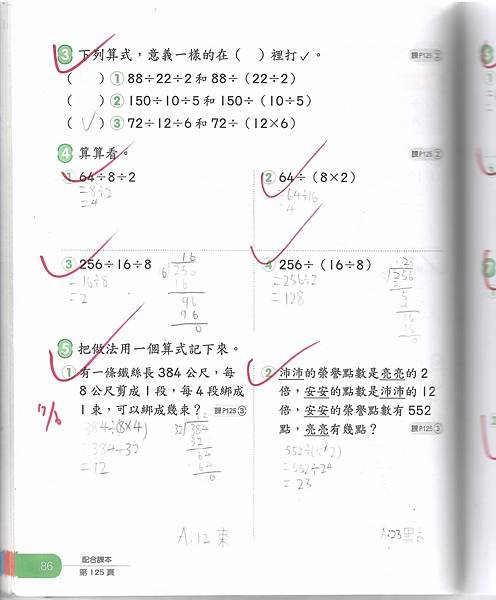 3 下列算式，意義一樣的在（ ）裡打✓。 課P125 2
（ ）1 88÷22÷2和88÷（22÷2）
（ ）2 150÷10÷5和150÷（10÷5）
（✓）3 72÷12÷6和72÷（12×6）
4 算算看。 課P125 2
1 64÷8÷2
=8÷2
=4
2 64÷（8×2）
=64÷16
=4
3 256÷16÷8
=16÷8
=2
16
256
16
96
96
0
4 256÷（16÷8）
=256÷2
=128
128
2 256
2
5
4
16
16
0
5 把做法用一個算式記下來。
1 有一條鐵絲長384公尺，每
8公尺剪成1段，每4段綁成
1束，可以綁成幾束？ 課P125 3
384÷(8×4)
=384÷32
=12
12
32 384
32
64
64
0
A:12束
2 沛沛的榮譽點數是亮亮的2
倍，安安的點數是沛沛的12
倍，安安的榮譽點數有552
點，亮亮有幾點？ 課P125 3
552÷(12×2)
=552÷24
=23
A:23點
86
配合課本
第125頁